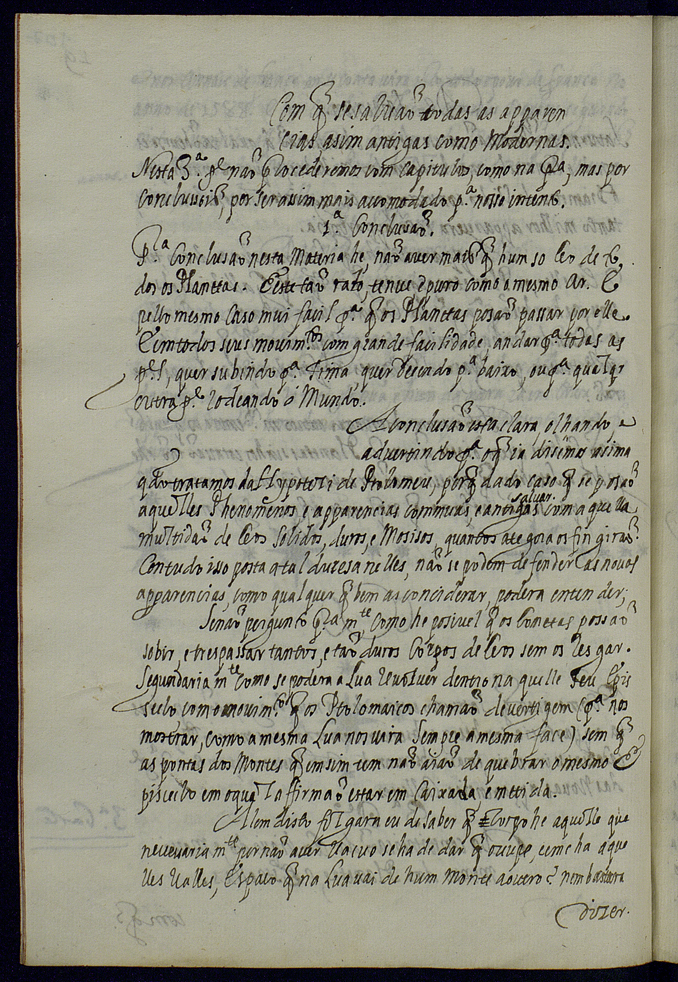 Com q̃ se saluaõ todas as apparen
cias asim antigas como Modernas.
Nesta 3.ª p.ᵉ não procederemos com capitulo, como na p.ª, mas por
Concluzois, por ser asim mais accomodado p.ª nosso intento.
1.ª Conclusaõ.
P.ª Conclusaõ nesta Materia he, naõ aver mais q̃ hum so Ceo de to
dos os Planetas. E este taõ raro, tenue e puro como o mesmo Ar. E
pello mesmo caso mui facil p.ª q̃ os Planetas posaõ passar por elle.
E em todos seus mouim.ᵗᵒˢ com grande facilidade, andar p.ª todas as
p.ᵗᵉˢ, quer subindo p.ª sima, quer descendo p.ª baixo, ou p.ª qualqr
outra p.ᵉ rodeando o Mundo.
A conclusaõ esta clara olhando e
advertindo p.ª o q̃ ia disemos asima
quando tratamos da Hypotesi de Ptolomeu, porq̃ dado caso q̃ se posaõ
salvar
aquelles Phenomenos e apparencias commuas, e antigas com aquella
multidaõ de Ceos Solidos, duros, e Mosisos, quantos ate gora os fingiraõ.
Contudo isso posta a tal dureza nelles, naõ se podem defender as novas
apparencias, como qualquer q̃ bem as conciderar, podera entender;
Senaõ pergunto p.ra m.ᵗᵉ como he posivel q̃ os Cometas possaõ
sobir, e trespassar tantos, e taõ duros Corpos de Ceos sem os resgar.
Segundaria m.ᵗᵉ como se podera a Lua revolver dentro naquelle seu Epis
siclo com o mouim.ᵗᵒ q̃ os Ptolomaicos chamaõ de vertigem (p.ª nos
mostrar, como a mesma Lua nos vira sempre a mesma face) sem q̃
as pontas dos Montes q̃ em sim tem naõ aiaõ de quebrar o mesmo E
pisciclo em o qual affirmaõ estar em Caixada e mettida.
Alem disto folgara eu de saber q̃ Corpo he aquelle que
necessaria m.ᵗᵉ por naõ aver vacuo se ha de dar q̃ occupe, e encha aque
lles valles, e Espaço q̃ na Lua vai de hum monte a outro? nem bastara
dizer.